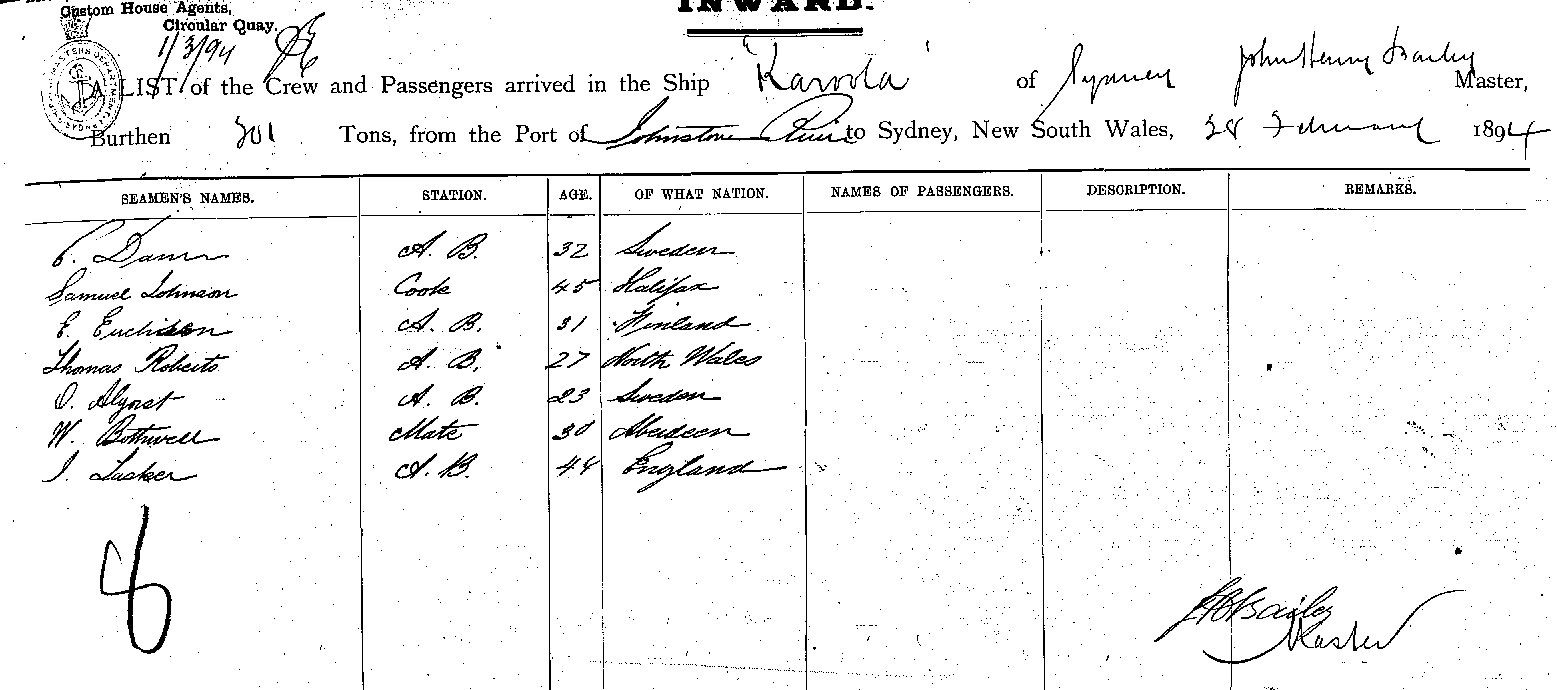 Custom House Agents,
Circular Quay.
INWARD.
1/3/94
A LIST of the Crew and Passengers arrived in the Ship "Karoola" of Sydney John Henry Bailey Master,
Burthen 301 Tons, from the Port of Johnstone River to Sydney, New South Wales, 28 February 1894
SEAMEN'S NAMES. STATION. AGE. OF WHAT NATION. NAMES OF PASSENGERS. DESCRIPTION. REMARKS.
A. B. 32 Sweden
Samuel Johnson Cook 45 Halifax
E. A. B. 31 Finland
Thomas Roberts A. B. 27 North Wales
O. A. B. 23 Sweden
W. Bothwell Mate 30 Aberdeen
J. Tucker A. B. 44 England
8
JHBailey
Master